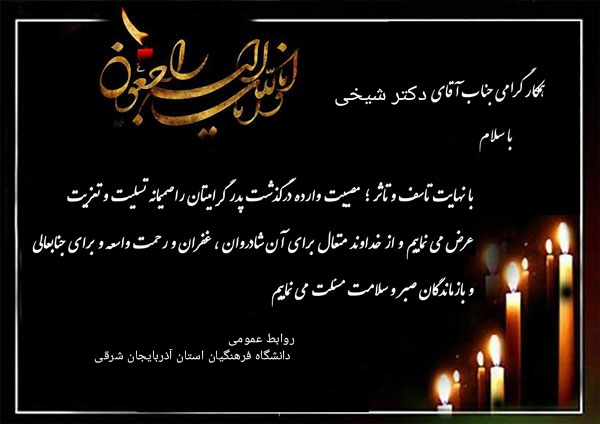 انا لله و انا الیه راجعون
همکار گرامی جناب آقای دکتر شیخی
با سلام
با نهایت تاسف و تاثر ؛ مصیبت وارده درگذشت پدر گرامیتان را صمیمانه تسلیت و تعزیت
عرض می نماییم و از خداوند متعال برای آن شادروان ، غفران و رحمت واسعه و برای جنابعالی
و بازماندگان صبر و سلامت مسئلت می نماییم
روابط عمومی
دانشگاه فرهنگیان استان آذربایجان شرقی